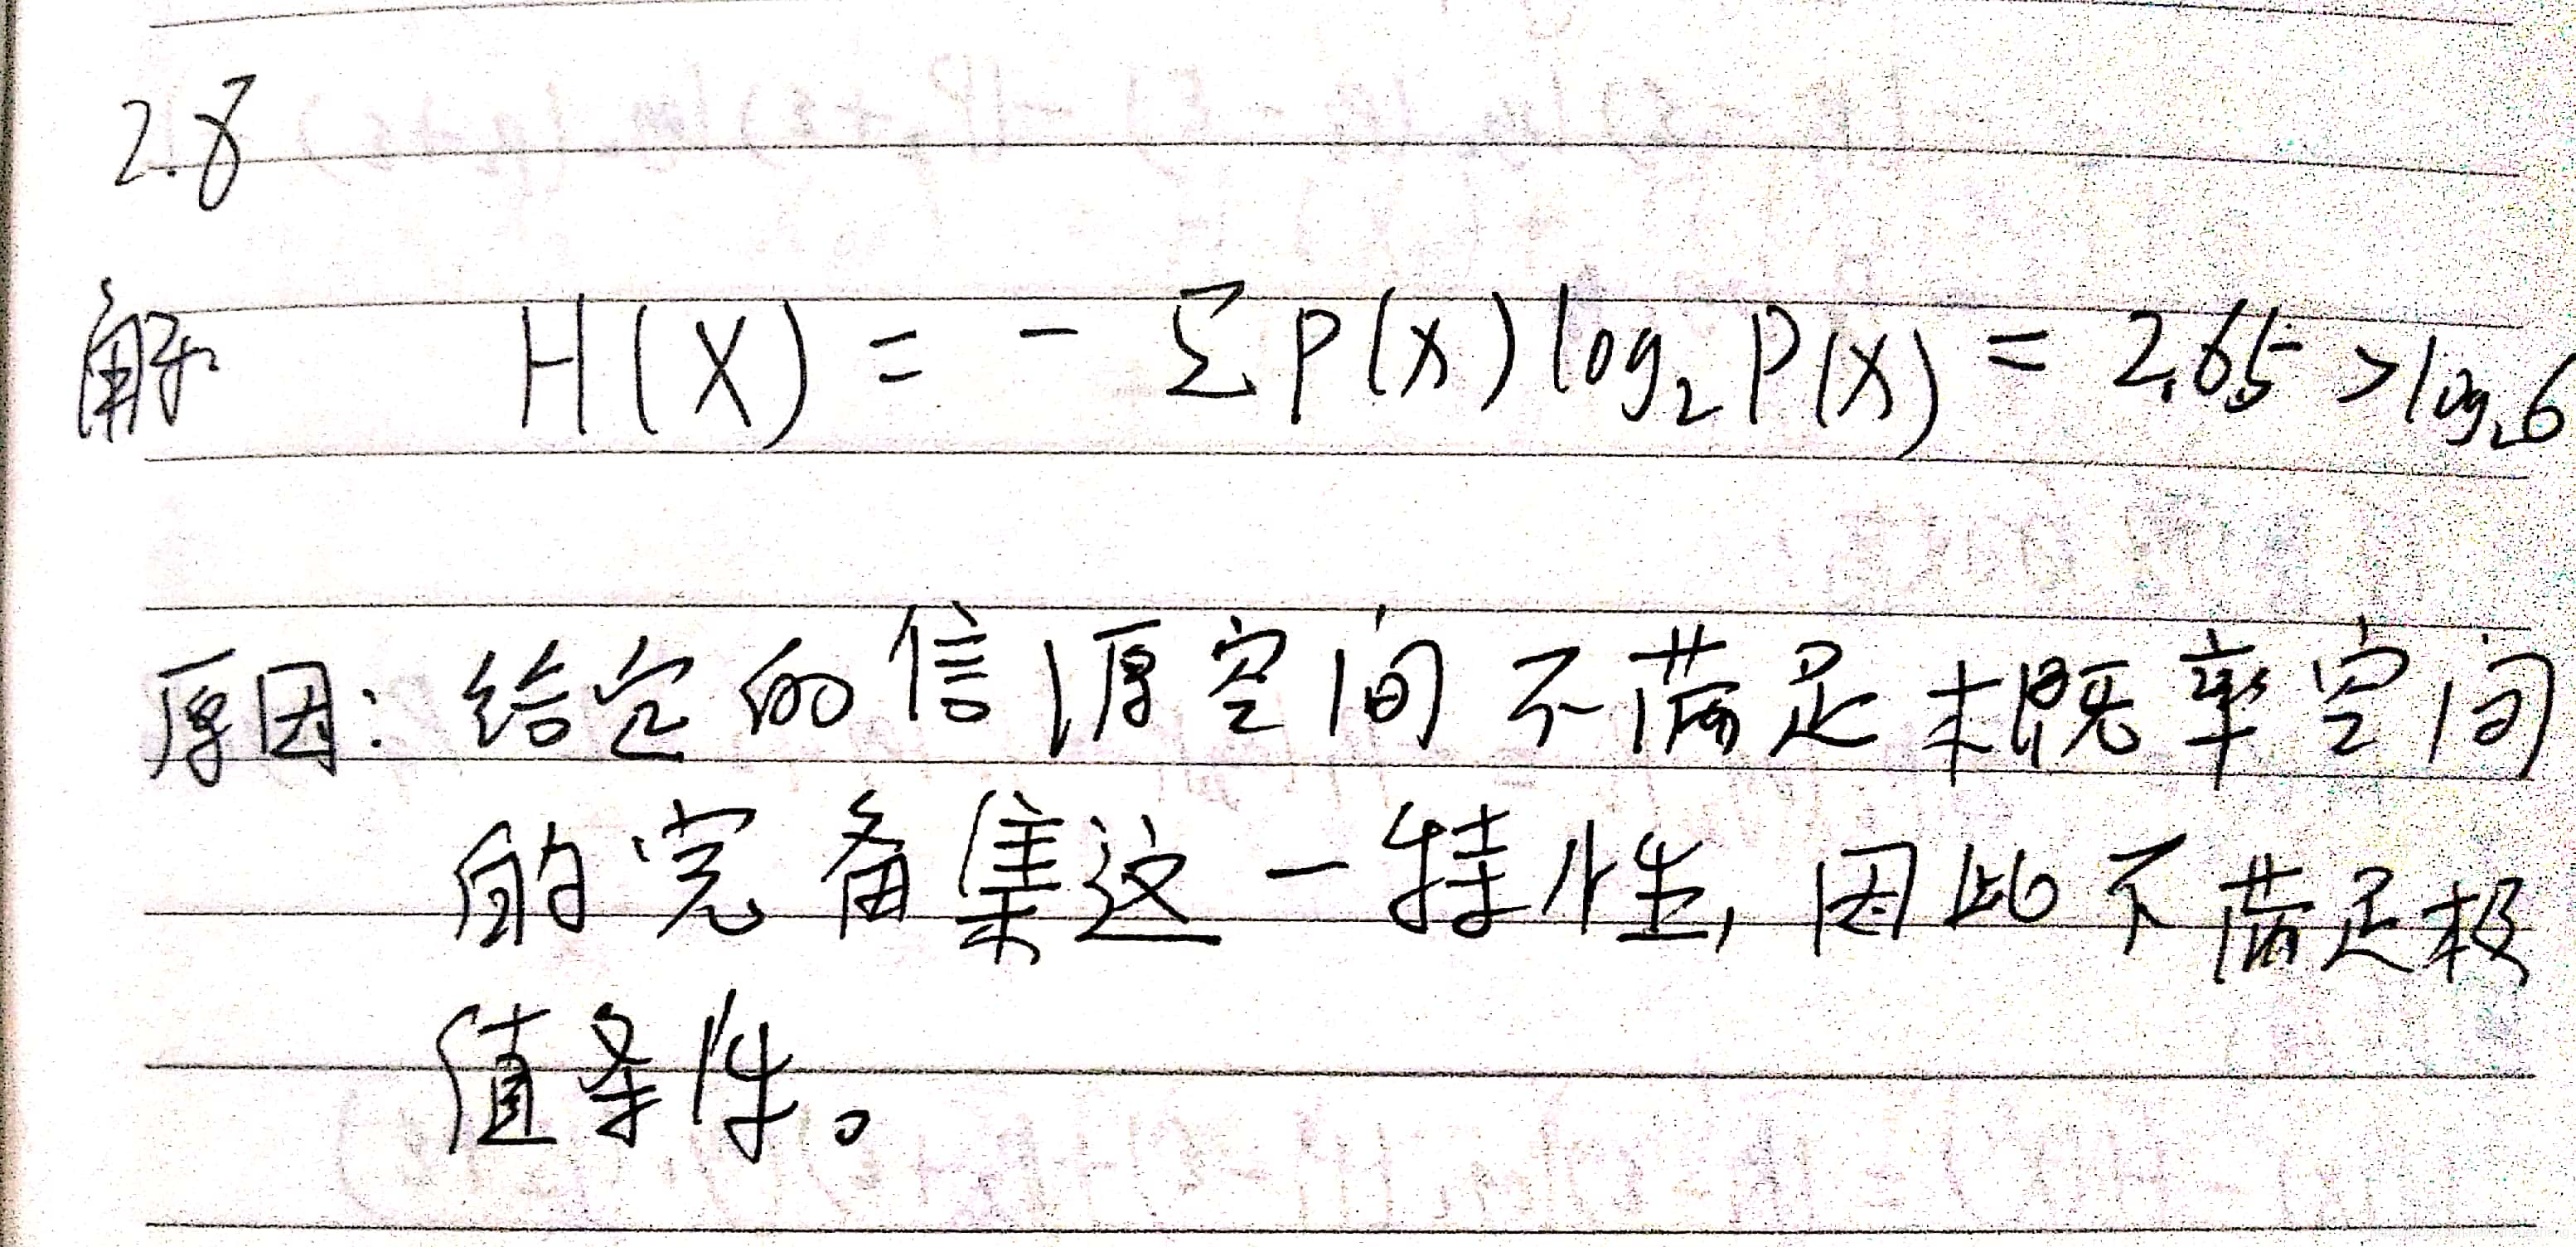 2.8
解 H(X) = - ΣP(X)log₂P(X) = 2.65 >log₂6
原因: 给定的信源空间不满足概率空间
的完备集这一特性, 因此不满足极
值条件。